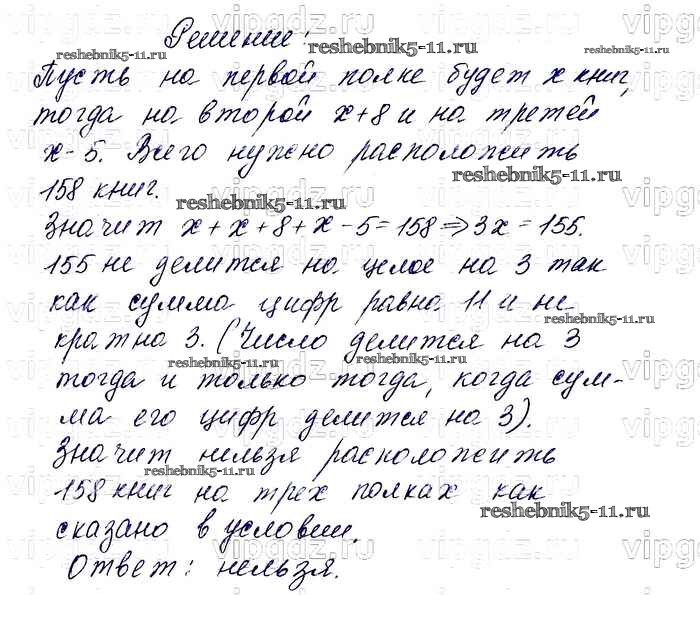 Решение:
Пусть на первой полке будет x книг,
тогда на второй x+8 и на третей
x-5. Всего нужно расположить
158 книг.
Значит x+x+8+x-5=158⇒3x=155.
155 не делится на целое на 3 так
как сумма цифр равна 11 и не
кратна 3. (Число делится на 3
тогда и только тогда, когда сум-
ма его цифр делится на 3).
Значит нельзя расположить
158 книг на трех полках как
сказано в условии.
Ответ: нельзя.
reshebnik5-11.ru
reshebnik5-11.ru
reshebnik5-11.ru
reshebnik5-11.ru
reshebnik5-11.ru
reshebnik5-11.ru
reshebnik5-11.ru
reshebnik5-11.ru
reshebnik5-11.ru
vipgdz.ru